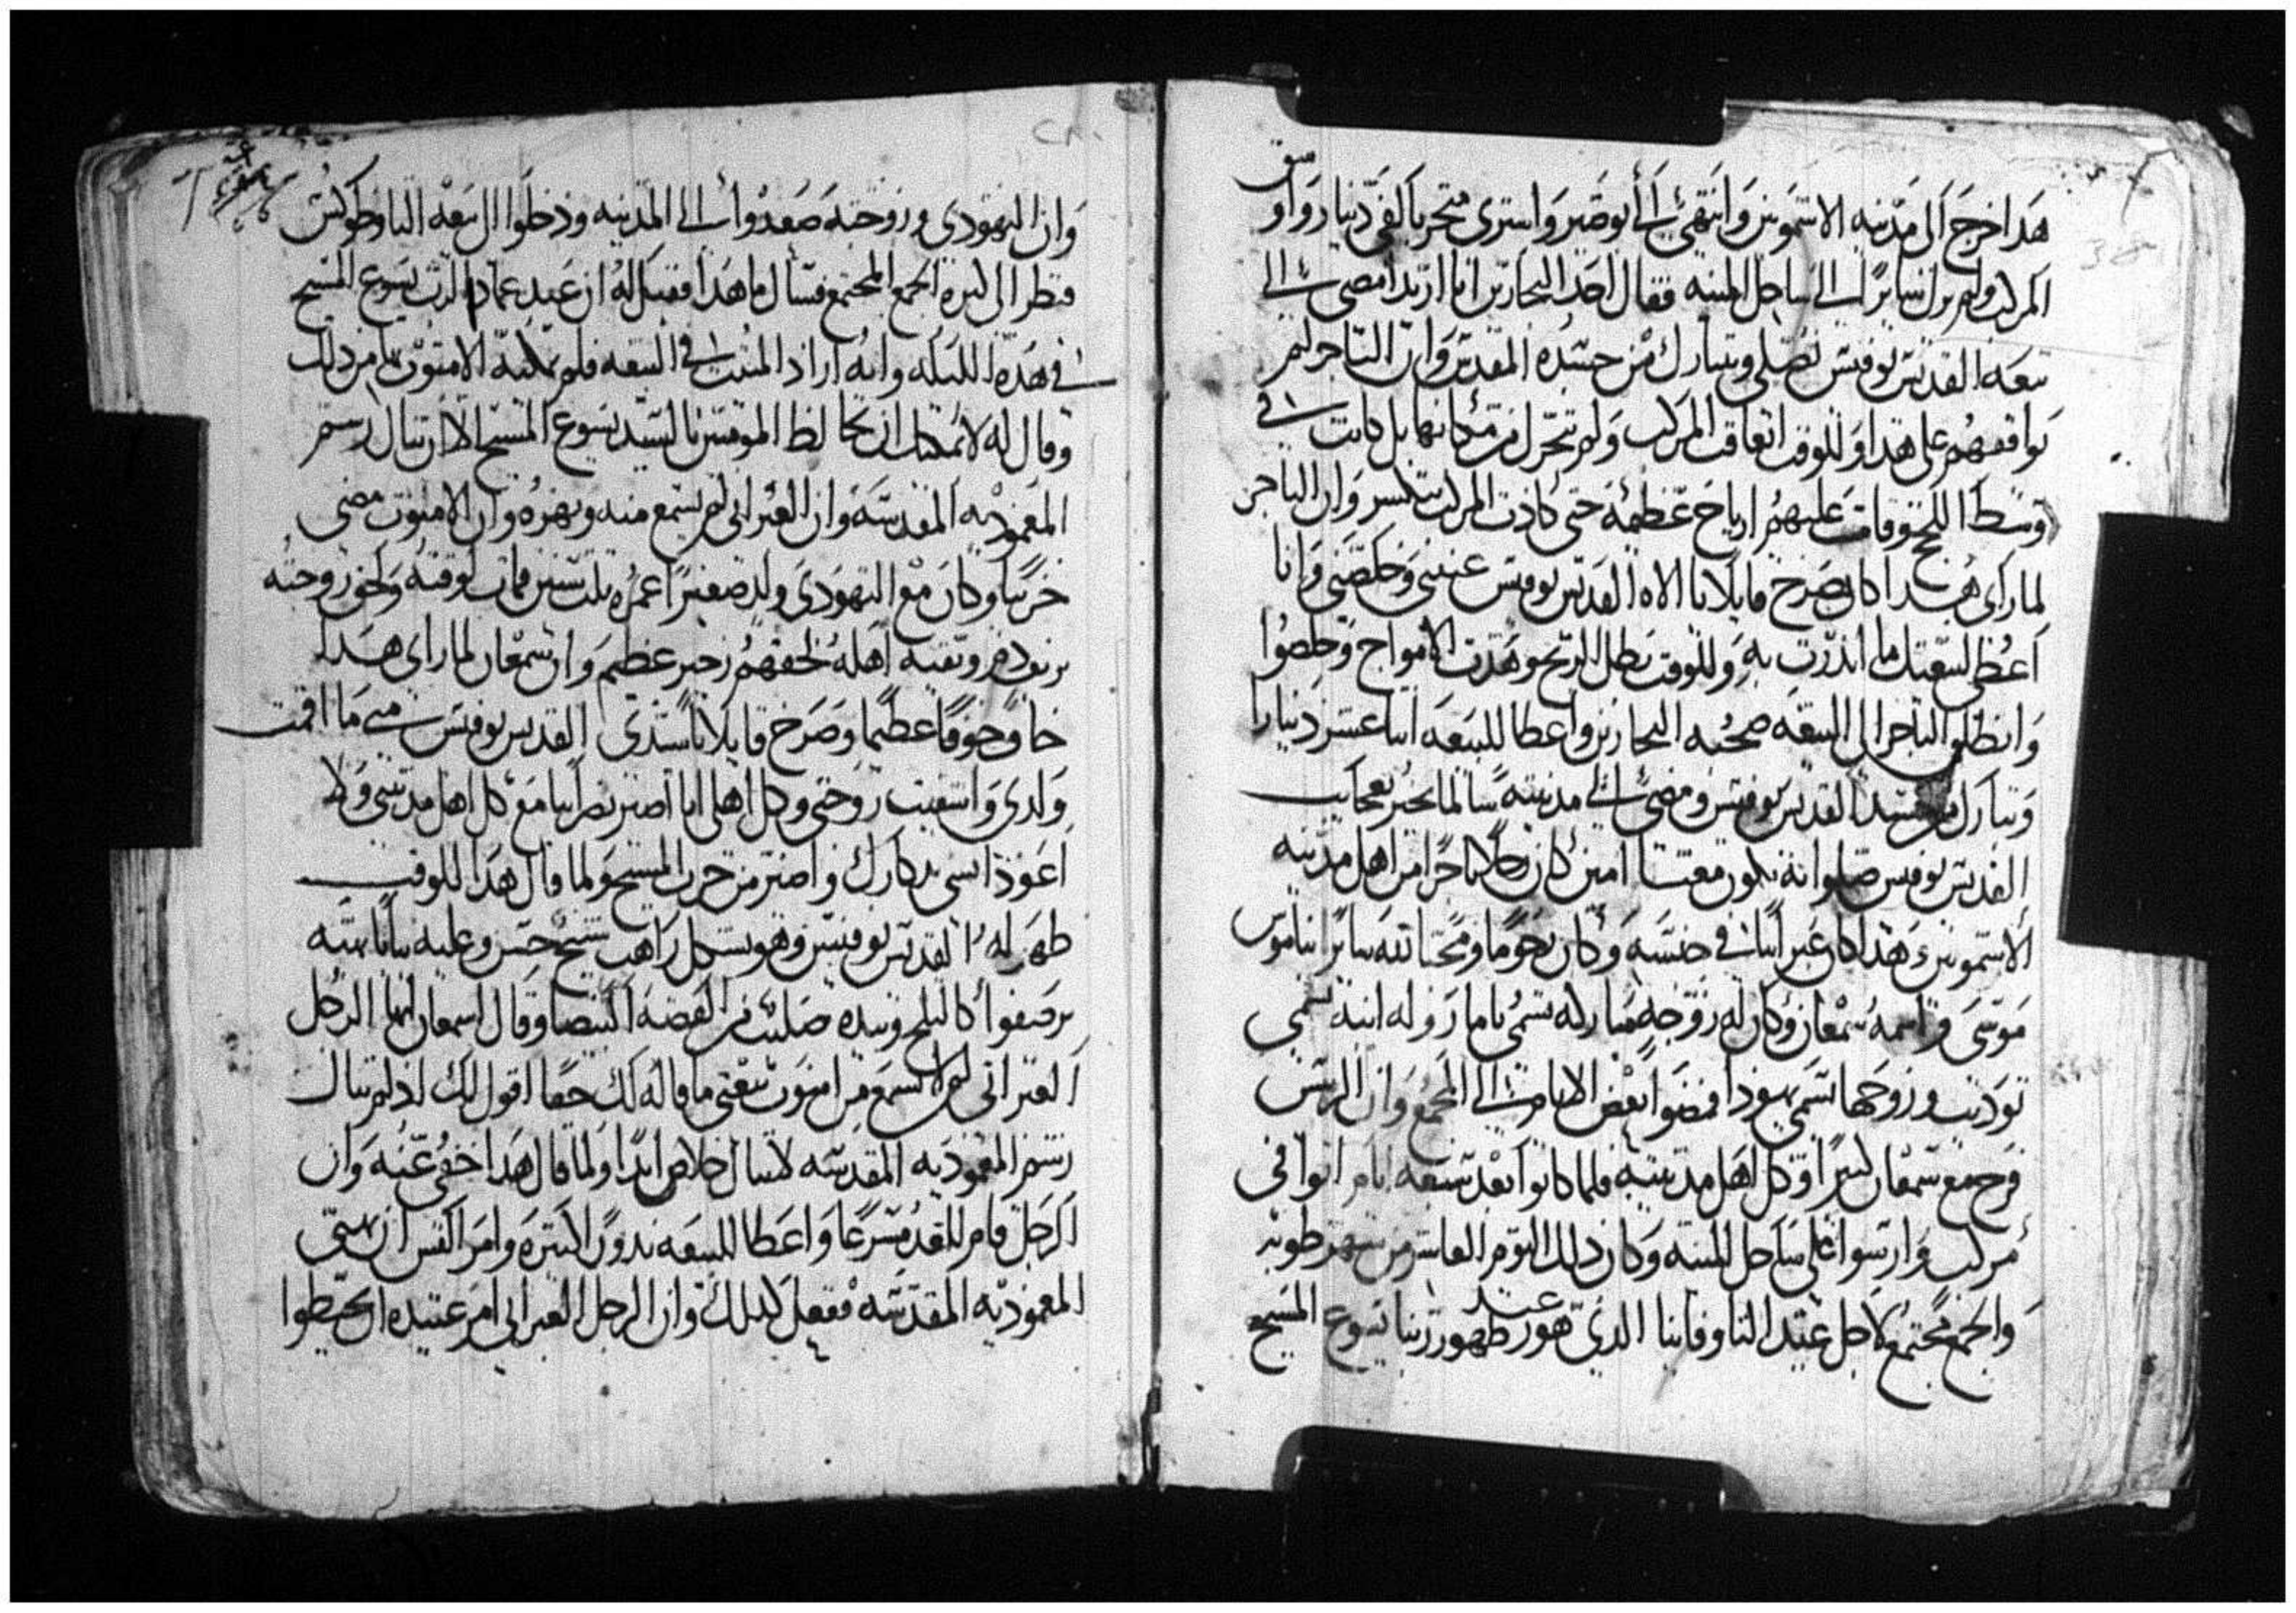 هدا خرج الى مدينه الاشمونين وانتهى الى أبوصير واسترى متجر بالفي دينار واوسق
المركب ولم يزل سايرًا الى ساحل المنيه فقال احد البحارين انا اريد امضي الى
بيعه القديس نوفيس نصلي ونتبارك من جسده المقدس وان التاجر لم
يوافقهم على هدا وللوقت اتعاقت المركب ولم تتحرك من مكانها بل كانت في
وسط اللجج وقامت عليهم ارياح عظيمه حتى كادت المركب تنكسر وان التاجر
لما راى هدا كان يصرخ قايلا يا الاه القديس نوفيس عينني وخلصني وانا
أعطي لبيعتك ما اندرت به وللوقت بطل الريح وهديت الامواج وخلصوا
وانطلق التاجر الى البيعه صحبه البحارين واعطا للبيعه اتنا عشر دينارا
وتبارك من جسد القديس نوفيس ومضى الى مدينته سالما يخبر بعجايب
القديس نوفيس صلواته تكون معنا امين كان رجلا تاجرًا من اهل مدينه
الاشمونين هدا كان عبرانيا في جنسه وكان رحومًا ومحبًا لله سايرًا بناموس
موسى واسمه سمعان وكان له زوجه مباركه تسمى يامار وله ابنه تسمى
نودیب وزوجها تسمى يهودا فمضوا بعض الايام الى المجمع وان الريس
فرح مع سمعان كتيرًا وكل اهل مدينته فلما كانوا بعد سبعه ايام اتوا في
مركب وارسوا على ساحل المنيه وكان دلك اليوم العاشر من شهر طوبه
والجمع مجتمع لاجل عيد التاوفانيا الدي هو عيد ظهور ربنا يسوع المسيح
وان اليهودي وزوجته صعدوا الى المدينه ودخلوا الى بيعه التاوطوكس
فنظر الى كتره الجمع المجتمع فسال ما هدا فقيل له ان عيد عماد الرب يسوع المسيح
في هده الليله وانه اراد المبيت في البيعه فلم يمكنه الامنوت من دلك
وقال له لا يمكنك ان تخالط المومنين بالسيد يسوع المسيح الا ان تنال رسم
المعموديه المقدسه وان العبراني لم يسمع منه ونهره وان الامنوت مضى
حزينا وكان مع اليهودي ولد صغيرًا عمره تلت سنين فمات لوقته ولحق زوجته
وبقيه اهله لحقهم زحير عظيم وان سمعان لما راى هدا
خاف خوفًا عظيمًا وصرخ قايلا يا سيدي القديس نوفيس متى ما اقمت
ولدي واشفيت زوجتي وكل اهلي انا اصير نصرانيا مع كل اهل مدينتي ولا
اعود انسى تدكارك واصير من حزب المسيح ولما قال هدا للوقت
ظهر له القديس نوفيس وهو بشكل راهب شيخ حسن وعليه تيابا بهيه
كالتلج وبيده صليب من الفضه البيضا وقال لسمعان ايها الرجل
العبراني لم لا تسمع من امنوت بيعتي ما قاله لك حقا اقول لك اد لم تنال
رسم المعموديه المقدسه لا تنال خلاص ابدًا ولما قال هدا خفي عنه وان
الرجل قام للغد مسرعا واعطا للبيعه ندورًا كتيره وامر القس ان يهيى
المعموديه المقدسه ففعل كدلك وان الرجل العبراني امر عبيده ان يحيطوا